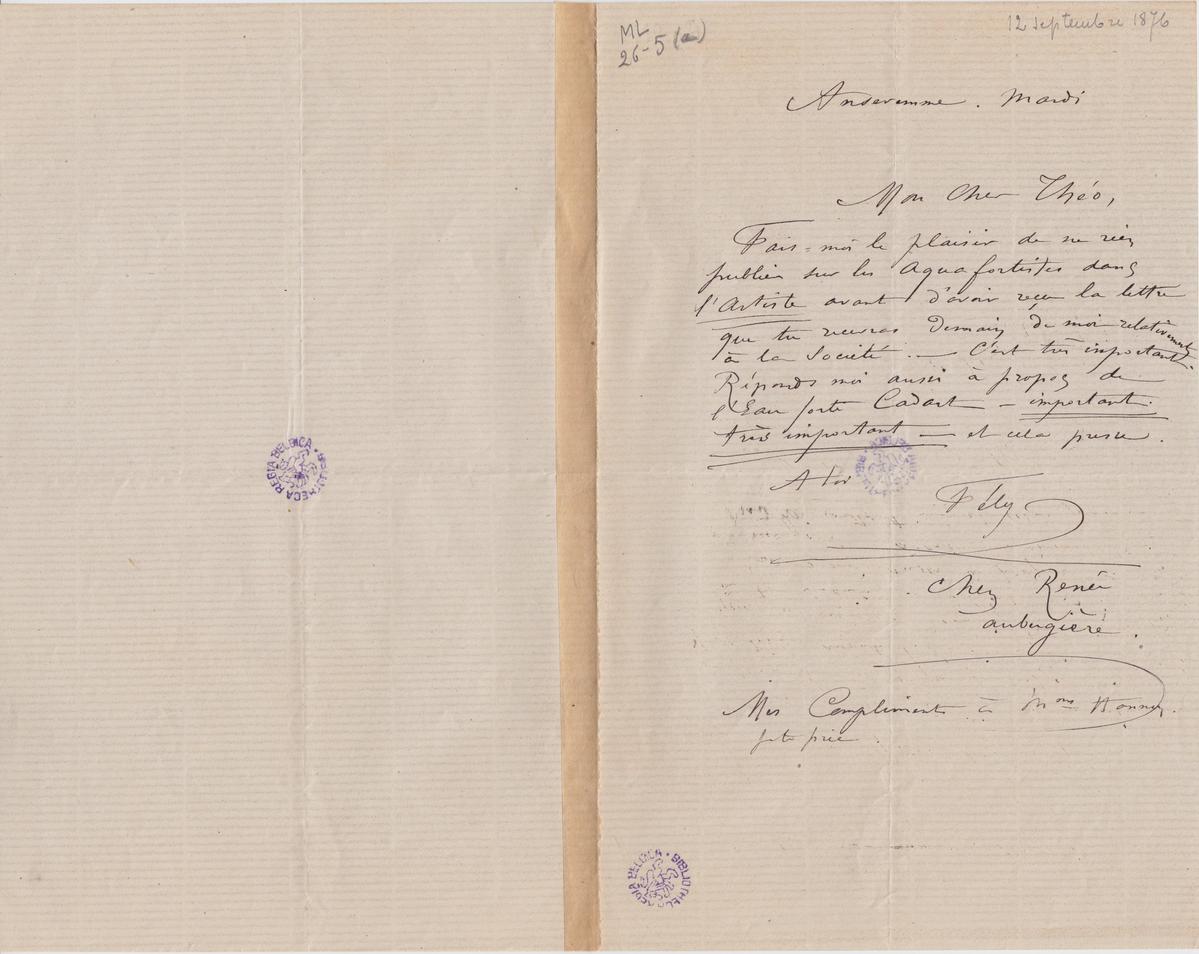 ML
26-5 (a)
12 septembre 1876
Anseremme. Mardi
Mon Cher Théo,
Fais-moi le plaisir de ne rien
publier sur les Aquafortistes dans
l'Artiste avant d'avoir reçu la lettre
que tu recevras Demain de moi relativement
à la Société. — C'est très important.
Réponds moi aussi à propos de
l'Eau forte Cadart — important
très important — et cela presse.
A toi
Fély
Chez Renée
aubergière.
Mes Compliments à Mme Hannon
je te prie.
BIBLIOTHECA REGIA BELGICA
BIBLIOTHECA REGIA BELGICA
BIBLIOTHECA REGIA BELGICA